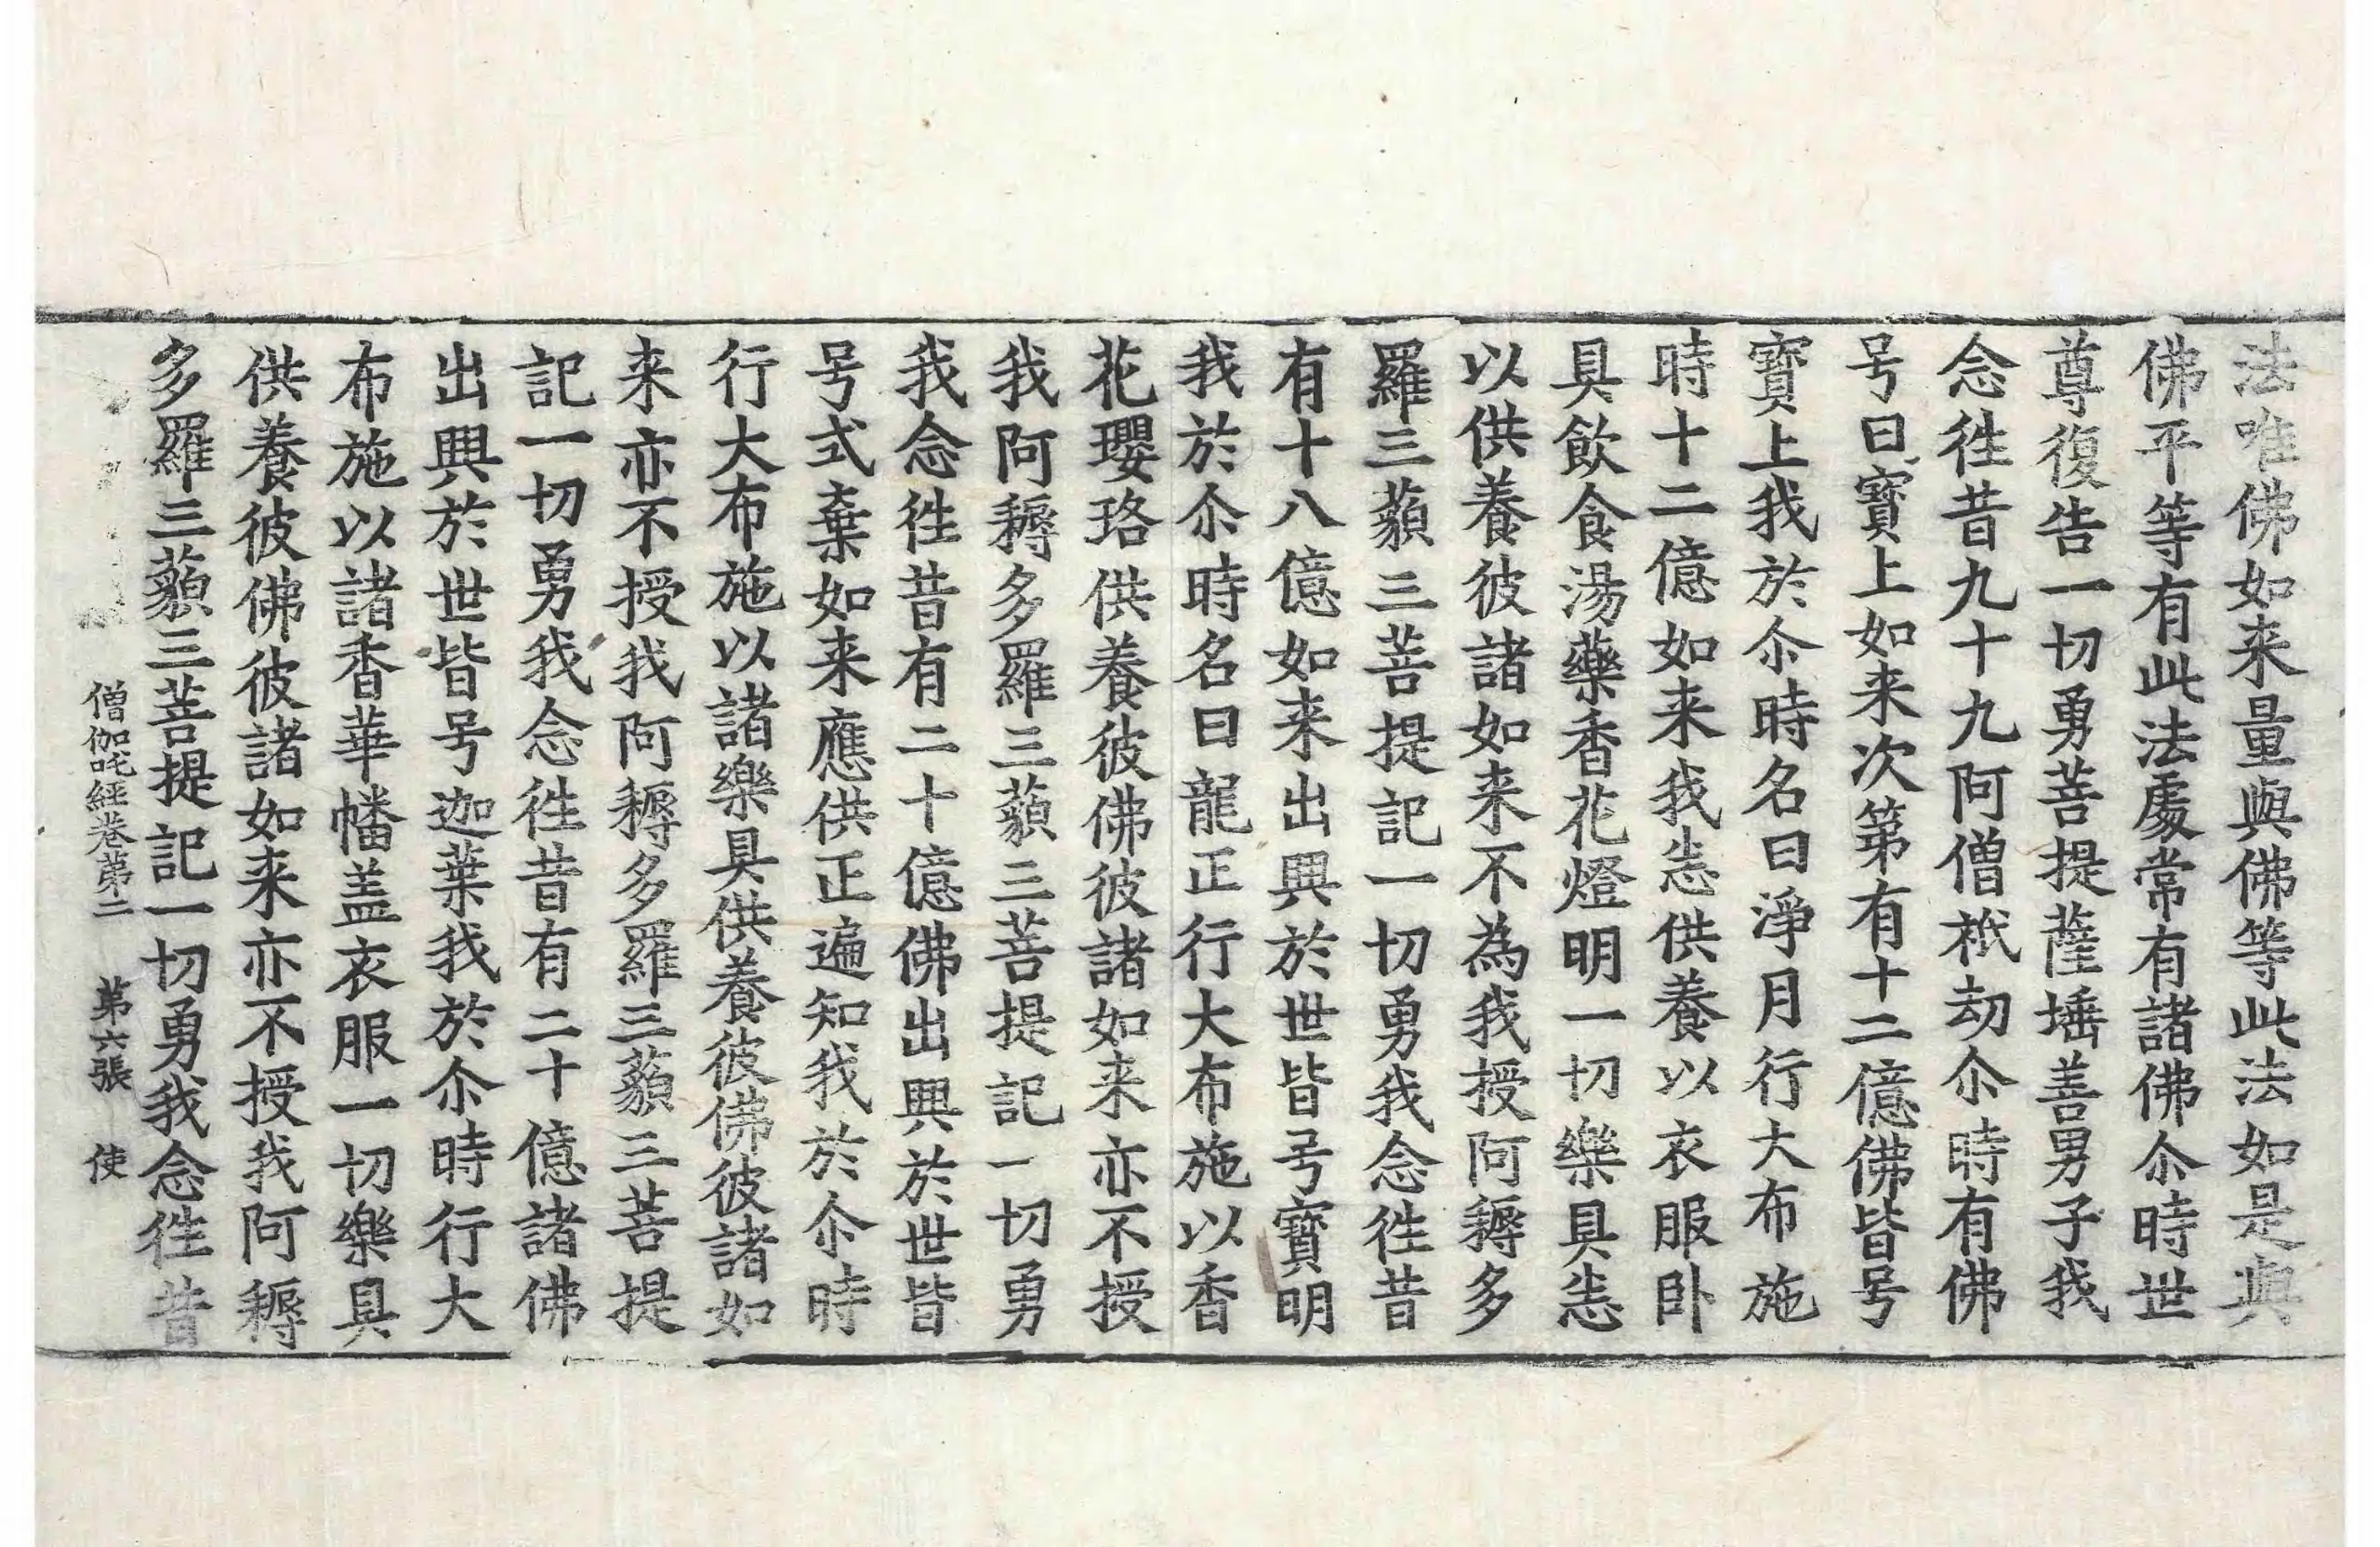 法唯佛如来量與佛等此法如是與
佛平等有此法處常有諸佛尒時世
尊復告一切勇菩提薩埵善男子我
念徃昔九十九阿僧祇劫尒時有佛
号曰寳上如来次第有十二億佛皆号
寳上我於尒時名曰淨月行大布施
時十二億如来我悉供養以衣服卧
具飲食湯藥香花燈明一切樂具悉
以供養彼諸如来不為我授阿耨多
羅三藐三菩提記一切勇我念徃昔
有十八億如来出興於世皆号寳明
我於尒時名曰龍正行大布施以香
花瓔珞供養彼佛彼諸如来亦不授
我阿耨多羅三藐三菩提記一切勇
我念徃昔有二十億佛出興於世皆
号式棄如来應供正遍知我於尒時
行大布施以諸樂具供養彼佛彼諸如
来亦不授我阿耨多羅三藐三菩提
記一切勇我念徃昔有二十億諸佛
出興於世皆号迦葉我於尒時行大
布施以諸香華幡盖衣服一切樂具
供養彼佛彼諸如来亦不授我阿耨
多羅三藐三菩提記一切勇我念徃昔
僧伽吒經卷第二 第六張 使